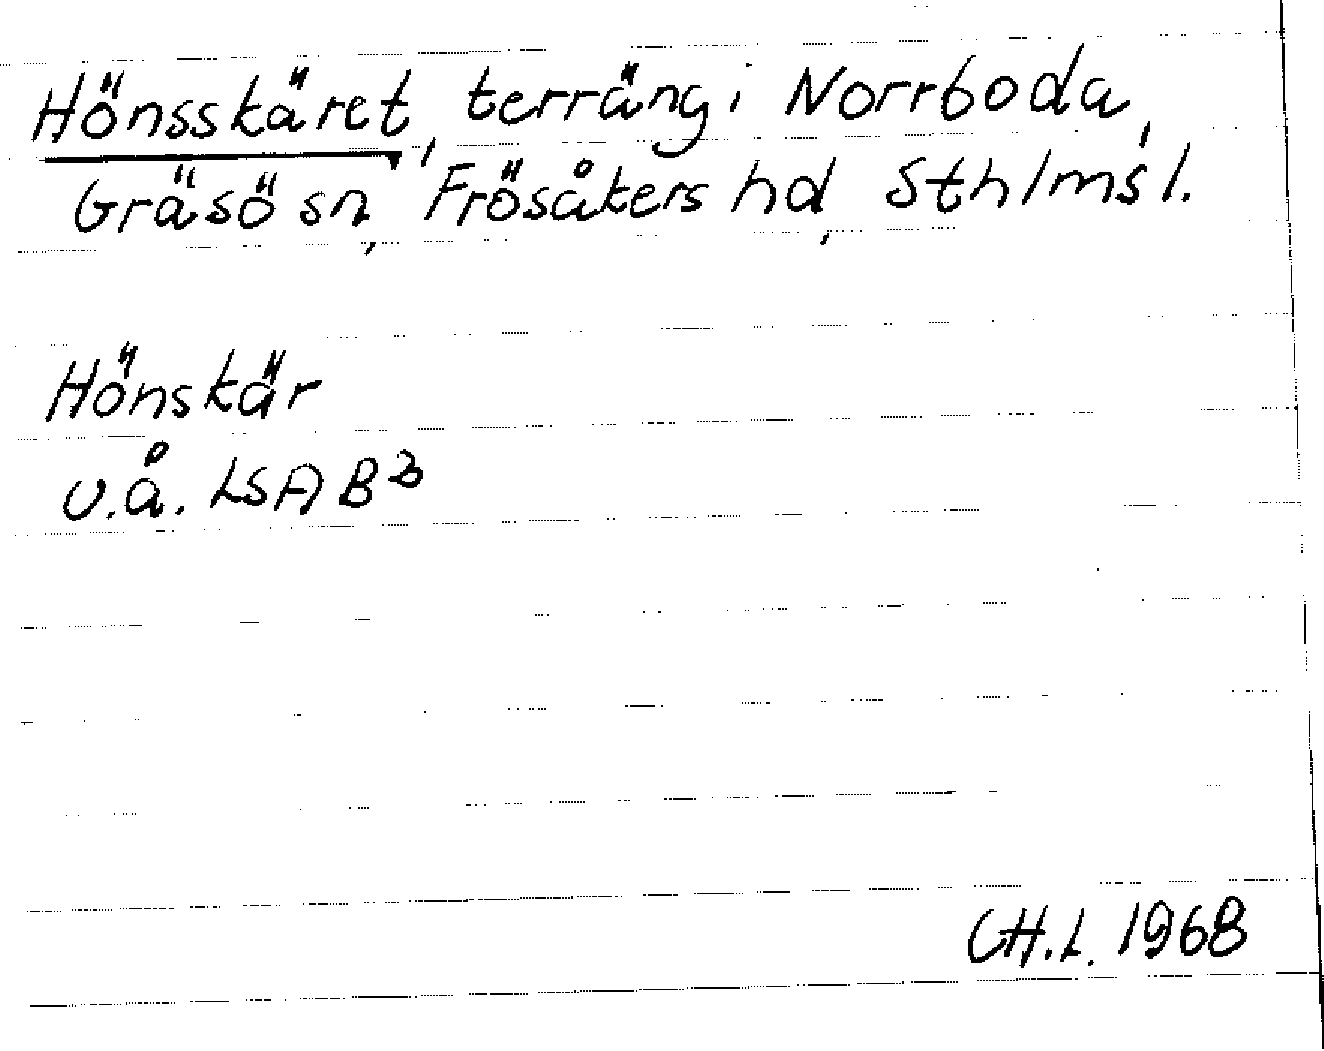 Hönsskäret, terräng i Norrboda,
Gräsö sn, Frösåkers hd, Sthlms l.
Hönskär
u.å. LSA B³
CH.L. 1968